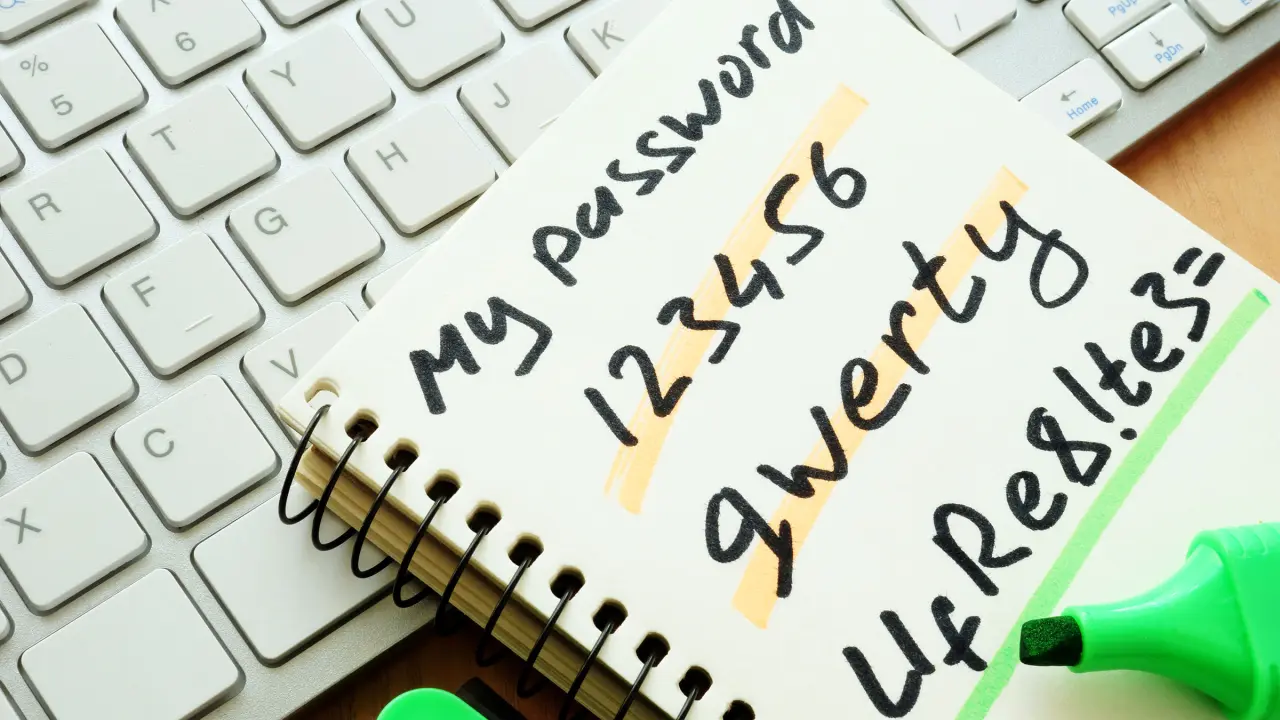 My password
123456
qwerty
UfRe8!te3=
% 5
^ 6
R
T
Y
U
D
F
G
H
J
K
X
C
V
/
PgUp
↓ PgDn
← Home